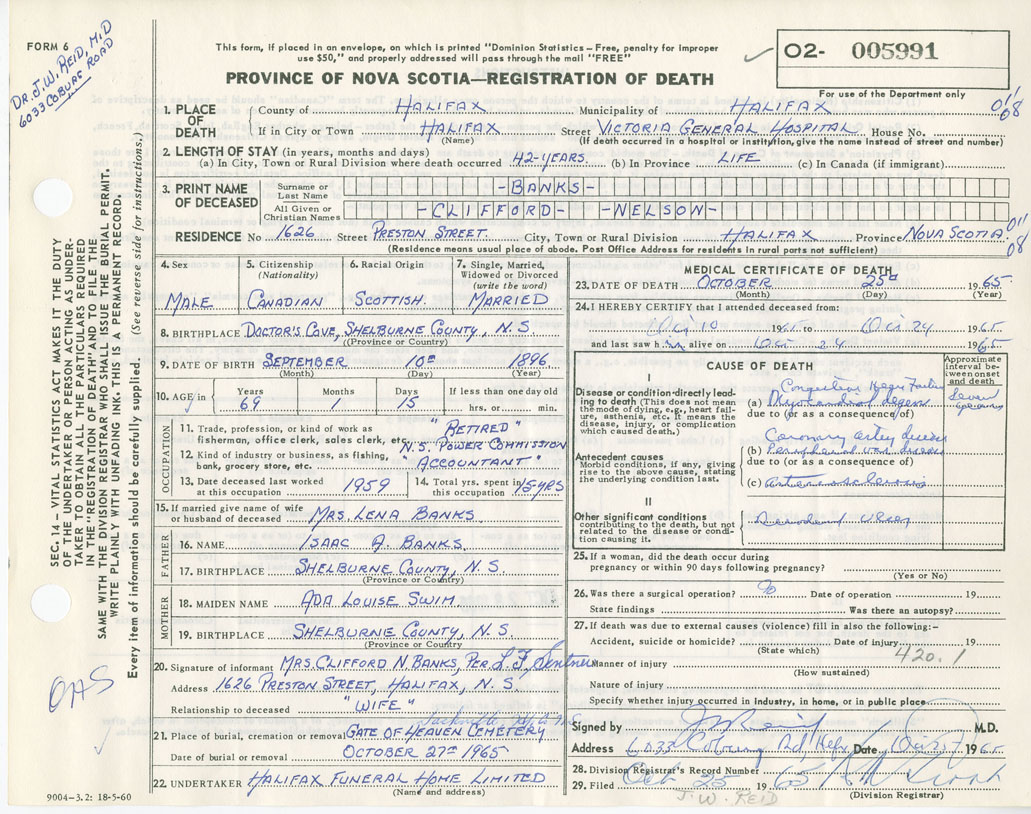 FORM 6
DR. J.W. REID, M.D
6033 COBURG ROAD
This form, if placed in an envelope, on which is printed "Dominion Statistics—Free, penalty for improper
use $50," and properly addressed will pass through the mail "FREE"
PROVINCE OF NOVA SCOTIA—REGISTRATION OF DEATH
02- 005991
For use of the Department only
068
1. PLACE OF DEATH
County of HALIFAX Municipality of HALIFAX
If in City or Town HALIFAX Street VICTORIA GENERAL HOSPITAL House No.
(Name) (If death occurred in a hospital or institution, give the name instead of street and number)
2. LENGTH OF STAY (in years, months and days)
(a) In City, Town or Rural Division where death occurred 42-YEARS. (b) In Province LIFE (c) In Canada (if immigrant)
3. PRINT NAME OF DECEASED
Surname or Last Name -BANKS-
All Given or Christian Names -CLIFFORD- -NELSON-
RESIDENCE No 1626 Street PRESTON STREET. City, Town or Rural Division HALIFAX Province NOVA SCOTIA
(Residence means usual place of abode. Post Office Address for residents in rural parts not sufficient)
4. Sex
MALE
5. Citizenship
(Nationality)
CANADIAN
6. Racial Origin
SCOTTISH.
7. Single, Married,
Widowed or Divorced
(write the word)
MARRIED
8. BIRTHPLACE DOCTOR'S COVE, SHELBURNE COUNTY, N.S
(Province or Country)
9. DATE OF BIRTH SEPTEMBER 10TH 1896
(Month) (Day) (Year)
10. AGE in Years 69 Months 1 Days 15 If less than one day old
hrs. or min.
OCCUPATION
11. Trade, profession or kind of work as
fisherman, office clerk, sales clerk, etc. "RETIRED"
12. Kind of industry or business, as fishing,
bank, grocery store, etc. N.S. POWER COMMISSION
"ACCOUNTANT"
13. Date deceased last worked
at this occupation 1959
14. Total yrs. spent in
this occupation 15 YRS
15. If married give name of wife
or husband of deceased MRS. LENA BANKS
FATHER
16. NAME ISAAC A. BANKS.
17. BIRTHPLACE SHELBURNE COUNTY, N.S.
(Province or Country)
MOTHER
18. MAIDEN NAME ADA LOUISE SWIM.
19. BIRTHPLACE SHELBURNE COUNTY, N.S.
(Province or Country)
20. Signature of informant MRS. CLIFFORD N. BANKS, PER L.F. Sentner
Address 1626 PRESTON STREET, HALIFAX, N.S.
Relationship to deceased "WIFE"
21. Place of burial, cremation or removal GATE OF HEAVEN CEMETERY
Date of burial or removal OCTOBER 27TH 1965
22. UNDERTAKER HALIFAX FUNERAL HOME LIMITED
(Name and address)
9004-3.2: 18-5-60
MEDICAL CERTIFICATE OF DEATH
23. DATE OF DEATH OCTOBER 25TH 1965
(Month) (Day) (Year)
24. I HEREBY CERTIFY that I attended deceased from:
Oct 10 to Oct 24 1965
and last saw him alive on Oct 24 1965
CAUSE OF DEATH
Approximate interval between onset and death
I
Disease or condition directly leading to death (This does not mean the mode of dying, e.g., heart failure, asthenia, etc. It means the disease, injury, or complication which caused death.)
Congestive Heart Failure
(a)
due to (or as a consequence of)
Antecedent causes
Morbid conditions, if any, giving rise to the above cause, stating the underlying condition last.
Coronary artery disease
(b) Peripheral
due to (or as a consequence of)
(c) Arteriosclerosis
II
Other significant conditions
contributing to the death, but not related to the disease or condition causing it.
Duodenal Ulcer
25. If a woman, did the death occur during
pregnancy or within 90 days following pregnancy?
(Yes or No)
26. Was there a surgical operation? Date of operation 19
State findings Was there an autopsy?
27. If death was due to external causes (violence) fill in also the following:-
Accident, suicide or homicide? Date of injury 19
(State which)
420.1
Manner of injury
(How sustained)
Nature of injury
Specify whether injury occurred in industry, in home, or in public place
Signed by J W Reid M.D.
Address 6033 Coburg Rd Hfx Date Oct 27 1965
28. Division Registrar's Record Number
29. Filed Oct 25 1965
(Division Registrar)
J. W. REID
SEC. 14—VITAL STATISTICS ACT MAKES IT THE DUTY
OF THE UNDERTAKER OR PERSON ACTING AS UNDER-
TAKER TO OBTAIN ALL THE PARTICULARS REQUIRED
IN THE "REGISTRATION OF DEATH" AND TO FILE THE
SAME WITH THE DIVISION REGISTRAR WHO SHALL ISSUE THE BURIAL PERMIT.
WRITE PLAINLY WITH UNFADING INK. THIS IS A PERMANENT RECORD.
Every item of information should be carefully supplied. (See reverse side for instructions.)
OAS